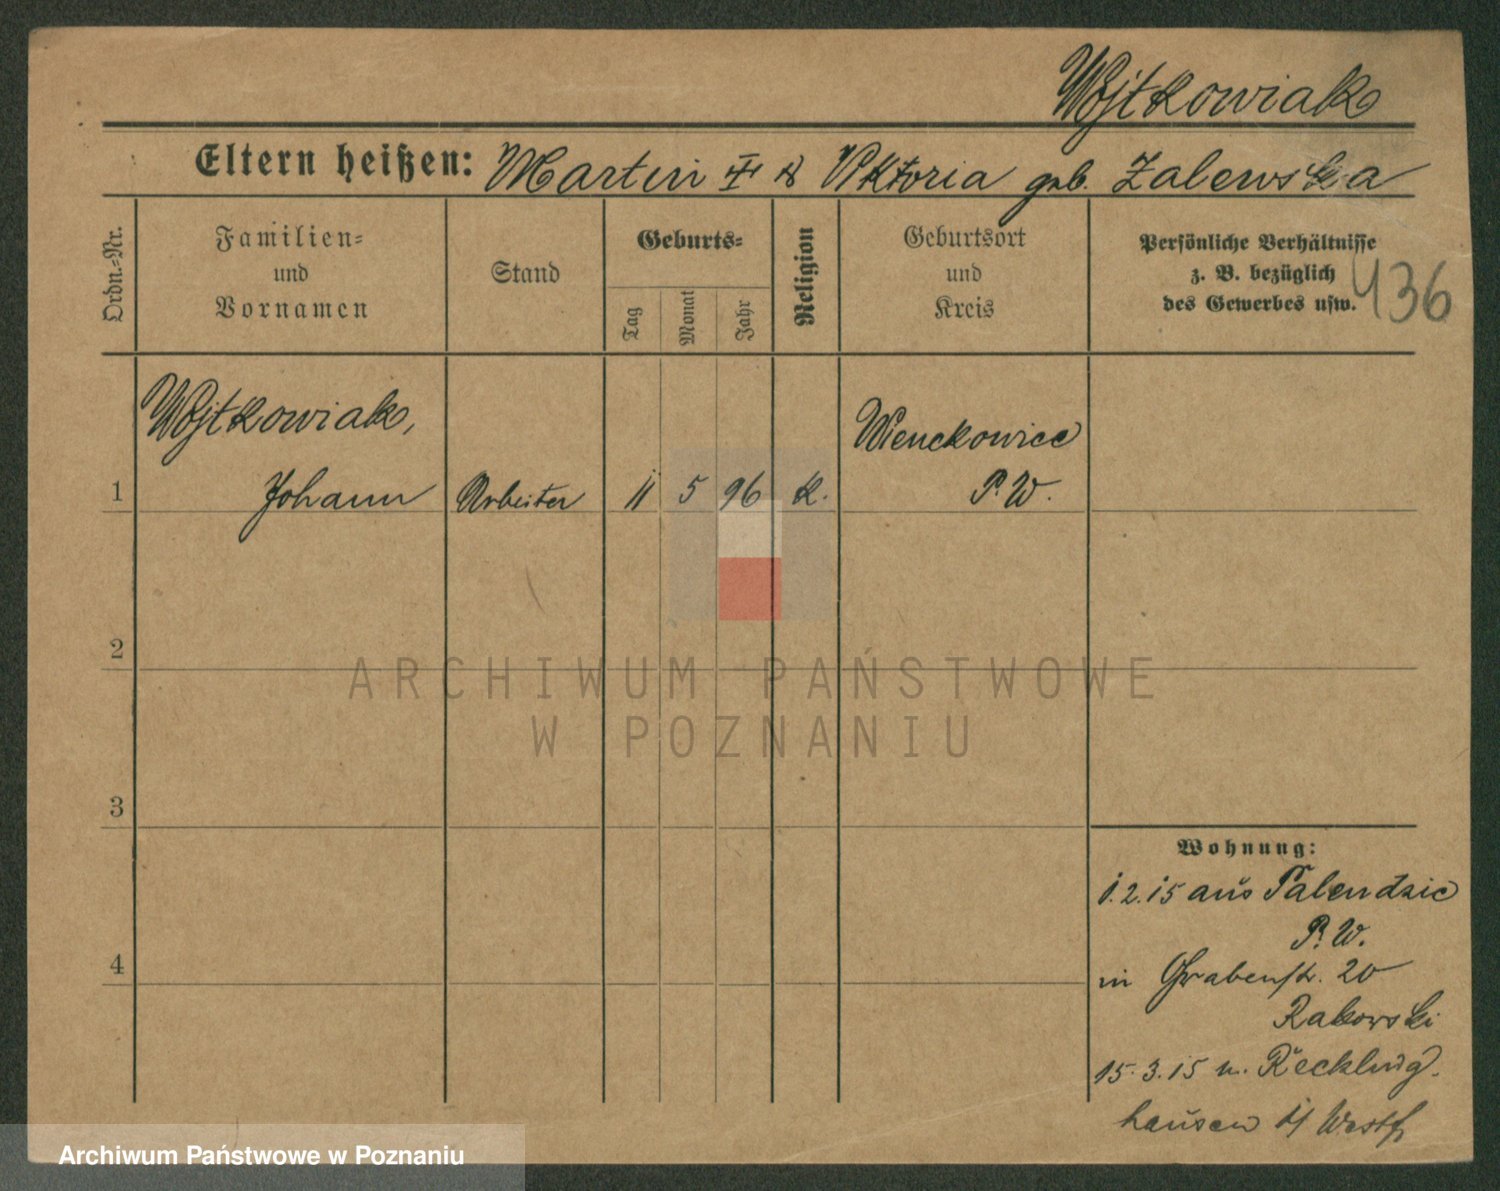 Wojtkowiak
Eltern heißen: Martin † & Viktoria geb. Zalewska
Ordn.-Nr.
Familien- und Vornamen
Stand
Geburts-
Tag
Monat
Jahr
Religion
Geburtsort und Kreis
Persönliche Verhältnisse
z. B. bezüglich
des Gewerbes usw.
436
Wojtkowiak,
Wienckowice
1 Johann Arbeiter 11 5 96 k. P. W.
2
3
4
Wohnung:
1.2.15 aus Palendzie
P. W.
in Grabenstr. 20
Rakowski
15.3.15 n. Reckling-
hausen i/ Westf
ARCHIWUM PAŃSTWOWE
W POZNANIU
Archiwum Państwowe w Poznaniu